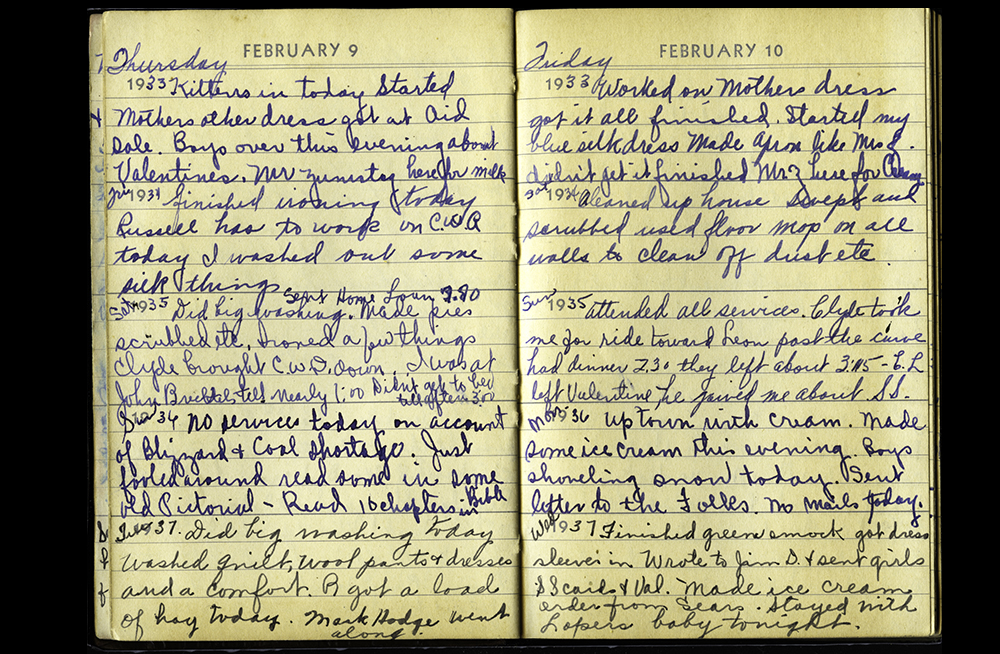 FEBRUARY 9
Thursday
1933 Kittens in today Started
Mothers other dress got at Aid
Sale. Boys over this evening about
Valentines. Mr here for milk
Fri 1934 finished ironing today
Russell has to work on C.W.A
today I washed out some
silk things
Sent Home Loan 7.80
Sat 1935 Did big washing. Made pies
scrubbed etc. Ironed a few things
Clyde brought C.W.D. down. I was at
John till nearly 1:00 Didn't get to bed
till after 3:00
Sun 36 No services today on account
of Blizzard & Coal Shortage. Just
fooled around read some in some
old Pictorial - Read 10 chapters in Bible
Tues 1937. Did big washing today
Washed quilt, wool pants & dresses
and a comfort. R got a load
of hay today. Mark Hodge went
along.
FEBRUARY 10
Friday
1933 Worked on Mothers dress
got it all finished. Started my
blue silk dress Made Apron like Mrs
didn't get it finished Mr. Z here for
Sat 1934 Cleaned up house Swept and
scrubbed used floor mop on all
walls to clean off dust etc.
Sun 1935 attended all services. Clyde took
me for ride toward Leon past the curve
had dinner 2.30 they left about 3:45 - C.L
left Valentine he joined me about S.S.
Mon 36 Up town with cream. Made
some ice cream this evening. Boys
shoveling snow today. Sent
letter to the Folks. No mails today.
Wed 1937 Finished green smock got dress
sleeves in Wrote to Jim D. & sent girls
SS cards & Val. Made ice cream
order from Sears. Stayed with
Lopers baby tonight.